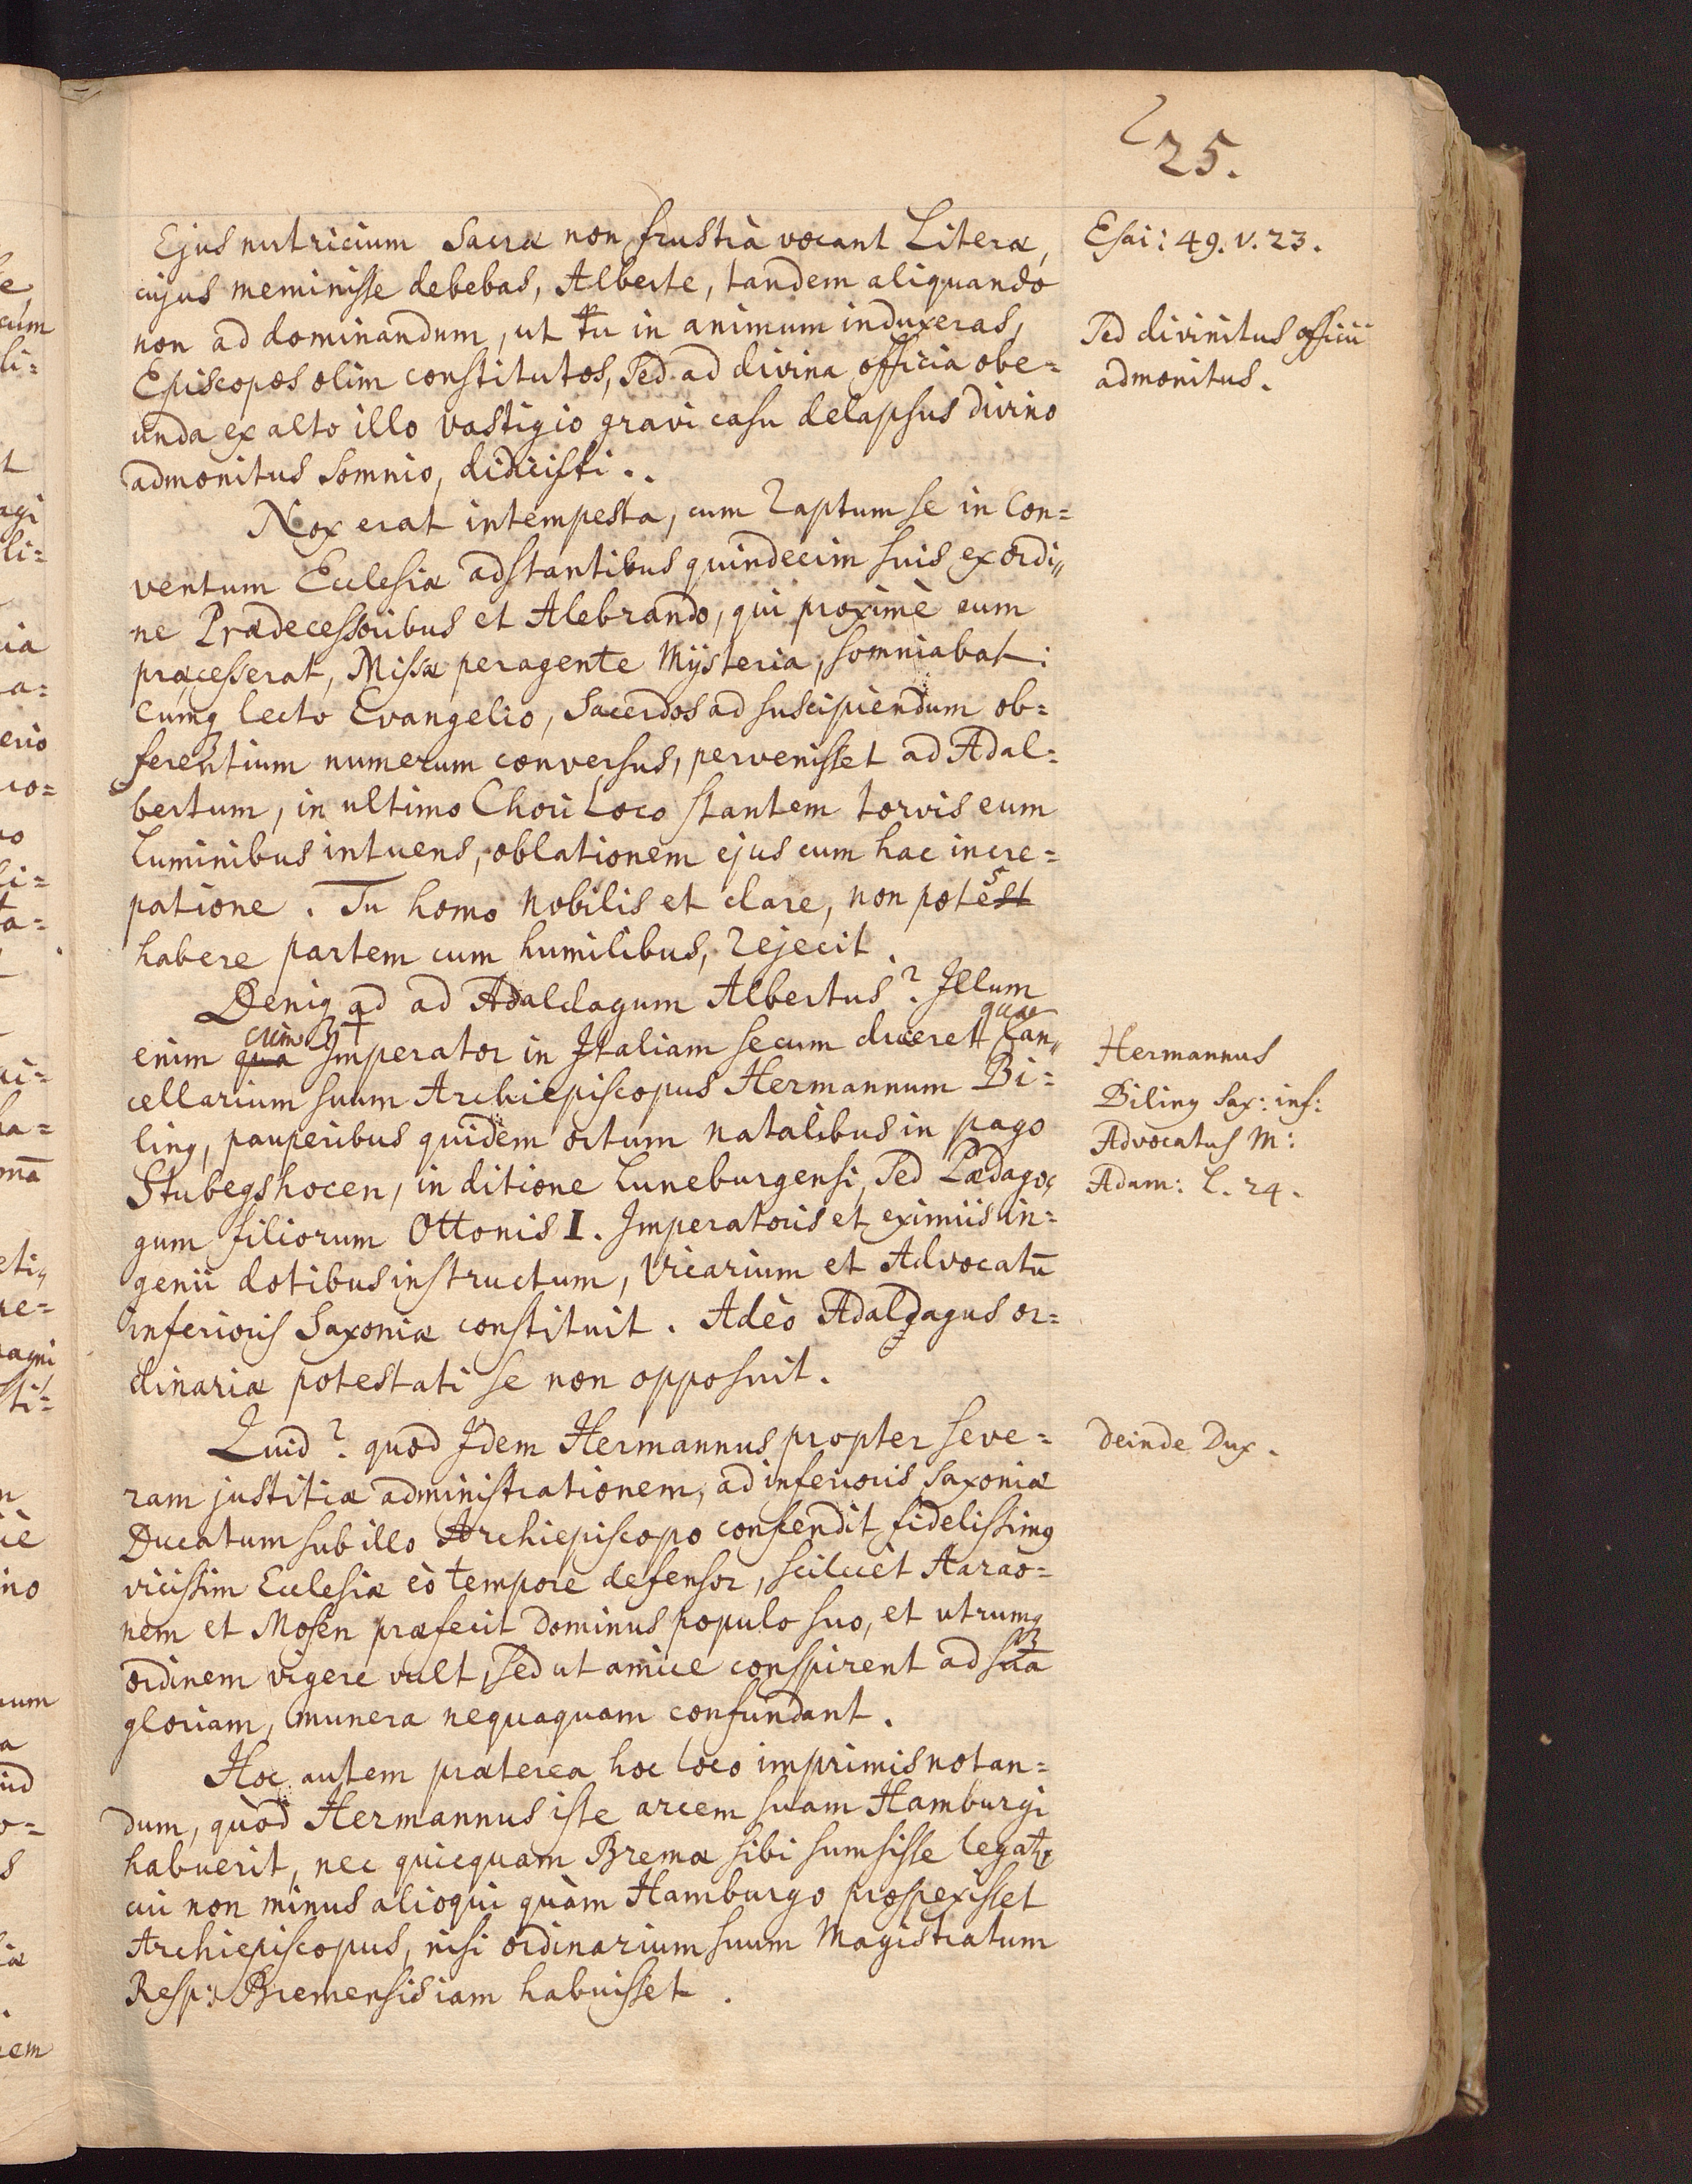 25.
Ejus nutricium Sacræ non frustrà vocant Literæ,
cujus meminisse debebas, Alberte, tandem aliquando
non ad dominandum, ut tu in animum induxeras,
Episcopos olim constitutos, Sed ad divina officia obe=
unda ex alto illo vastigio gravi casu delapsus divino
admonitus somnio, didicisti..
Nox erat intempesta, cum raptum se in Con=
ventum Ecclesiæ adstantibus quindecim suis ex ordi„
ne Prædecessoribus et Alebrando, qui proximè eum
præcesserat, Missæ peragente Mysteria, somniabat:
Cumq lecto Evangelio, Sacerdos ad suscipiendum ob=
ferentium numerum conversus, pervenisset ad Adal=
bertum, in ultimo Chori Loco stantem torvis eum
Luminibus intuens, oblationem ejus cum hac incre=
patione. Tu homo nobilis et clare, non potes
habere partem cum humilibus, rejecit.
Deniq ad ad Adaldagum Albertus? Illum
enim cum Imperator in Italiam secum duceret quæ Can„
cellarium suum Archiepiscopus Hermannum Bi=
ling, pauperibus quidem ortum natalibus in pago
Stubegshocen, in ditione Luneburgensi, Sed Pædago,
gum filiorum Ottonis I. Imperatoris et eximiis in=
genii dotibus instructum, Vicarium et Advocatū
inferioris Saxoniæ constituit. Adeò Adaldagus or=
dinariæ potestati se non opposuit.
Quid? quod Idem Hermannus propter seve=
ram justitiæ administrationem, ad inferioris Saxoniæ
Ducatum sub illo Archiepiscopo conscendit fidelissimq
vicissim Ecclesiæ eò tempore defensor, scilicèt Aarao=
nem et Mosen præfecit Dominus populo suo, et utrumq
ordinem vigere vult, sed ut amice conspirent ad suā
gloriam, munera nequaquam confundant.
Hoc autem præterea hoc loco imprimis notan=
dum, quòd Hermannus iste arcem suam Hamburgi
habuerit, nec quicquam Bremæ sibi sumsisse legatr,
cui non minus alioqui quàm Hamburgo prospexisset
Archiepiscopus, nisi ordinarium suum Magistratum
Resp: Bremensis iam habuisset.
Esai: 49. v. 23.
Sed divinitus officii
admonitus.
Hermannus
Biling Sax: inf:
Advocatus M:
Adam: l. 24.
deinde Dux.